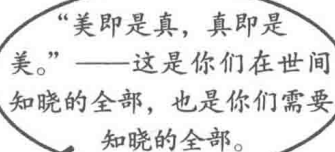 “美即是真，真即是
美。”——这是你们在世间
知晓的全部，也是你们需要
知晓的全部。